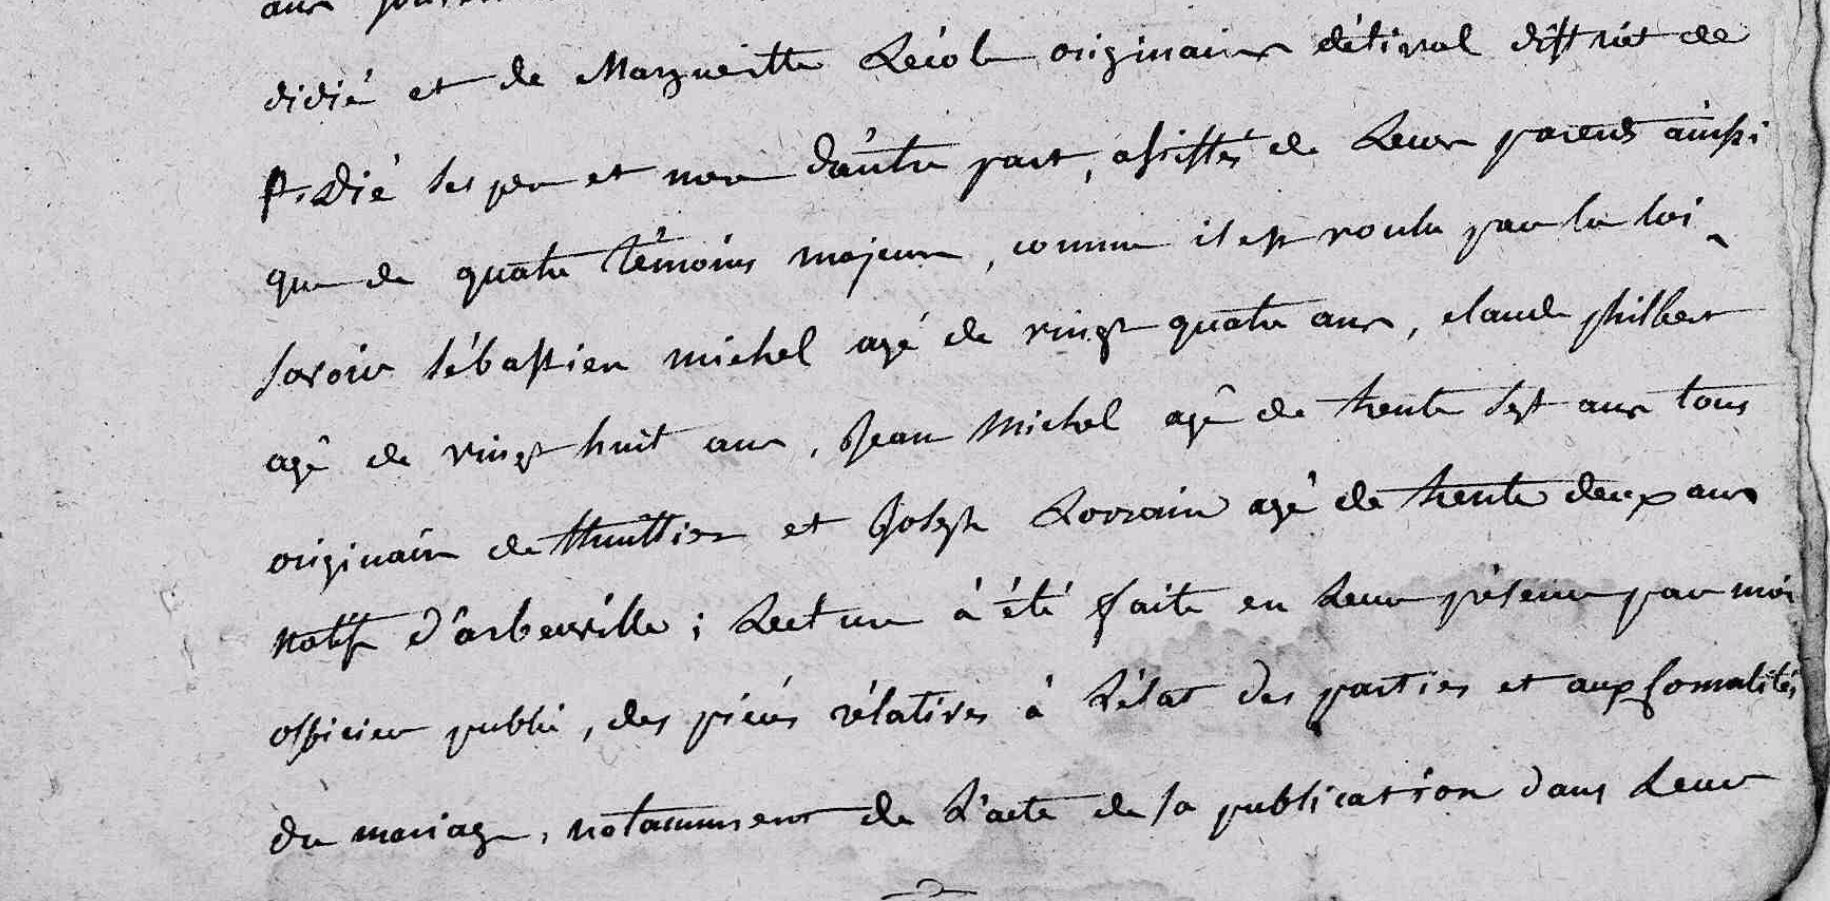 didié et de Margueritte Lécole originaires d'étival district de
St. Dié ses per et mere d'autre part, assistés de Leurs parents ainssi
que de quatre témoins majeurs, comme il est voulu par la loi
savoir sébastien michel agé de vingt quatre ans, claude philbert
agé de vingt huit ans, Jean Michel agé de trente sept ans tous
originaire de et Joseph Lorrain agé de trente deux ans
natif d' ; Lecture à été faite en Leur présence par moi
officier public, des pièces rélatives à L'état des parties et aux formalités
du mariage, notamment de L'acte de sa publication dans Leur